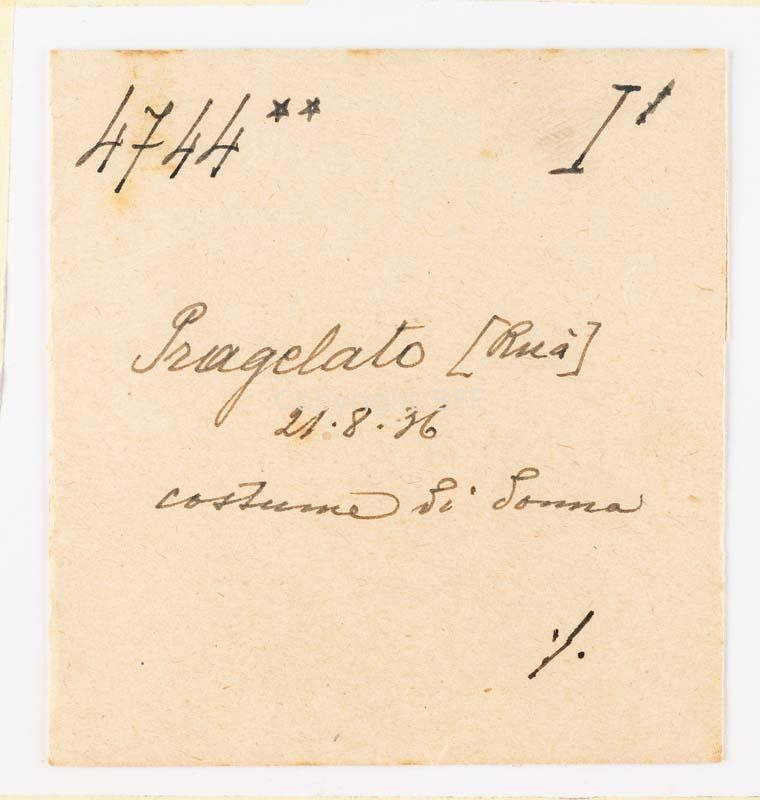 4744** I'
Pragelato [Ruà]
21.8.36
costume di donna
·/.